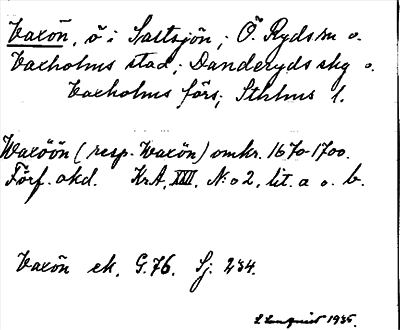 Vaxön, ö i Saltsjön; Ö Ryds sn o.
Vaxholms stad; Danderyds skg o.
Vaxholms förs; Sthlms l.
Waxöön (resp. Waxön) omkr. 1670-1700.
Förf. okd. Kr.A, XXII, N:o 2, lit. a o. b.
Vaxön ek. G.76. Sj. 234.
1935.